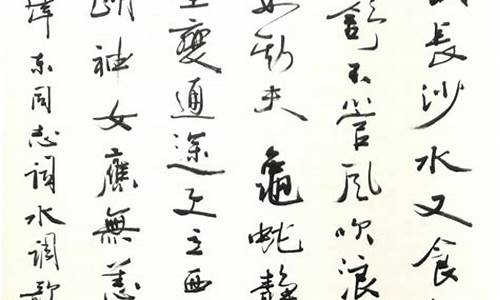 長沙水又食
舒不管风吹浪
如斯夫龜蛇靜
變通途更立西
湖神女應無恙
澤东同志詞水調歌